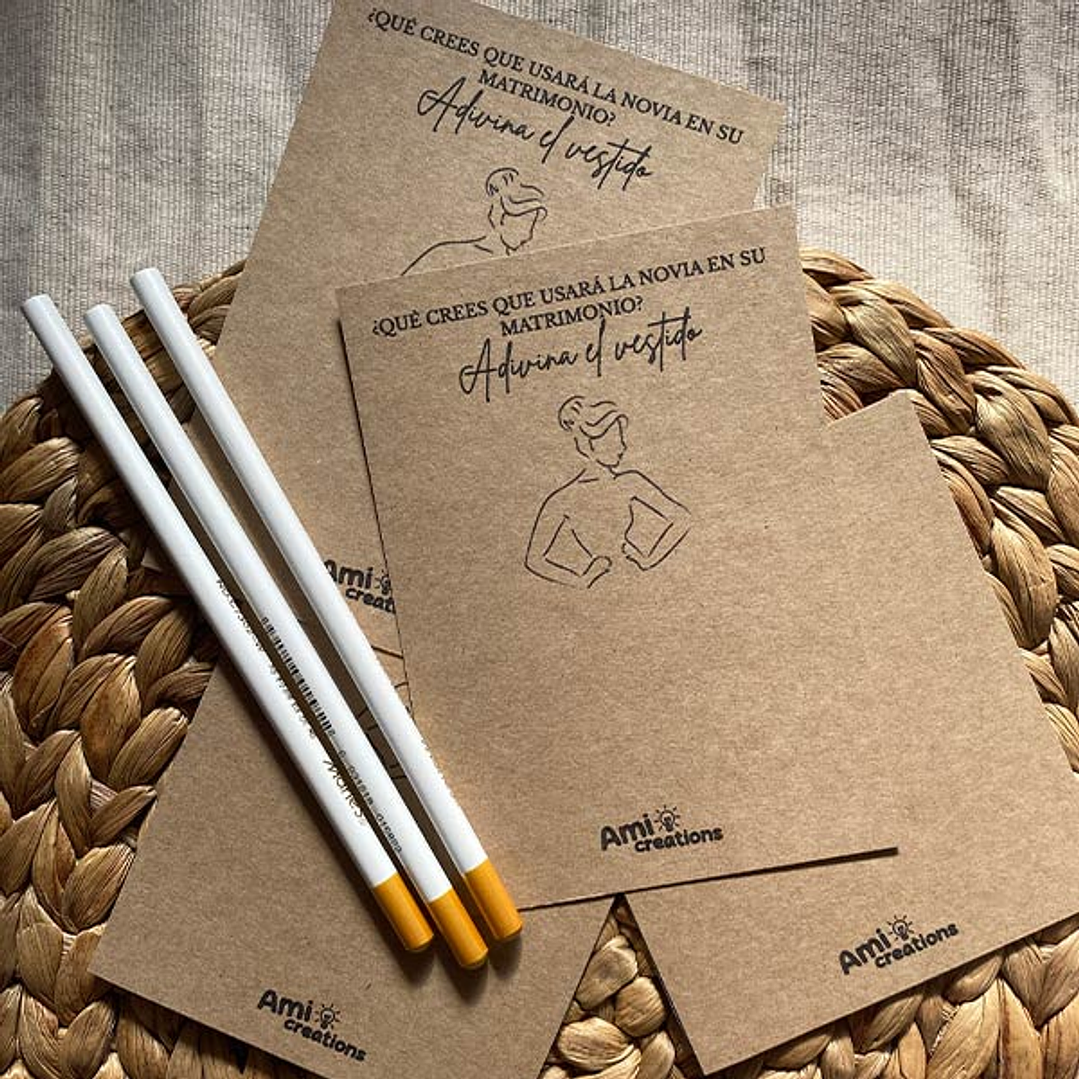 ¿QUÉ CREES QUE USARÁ LA NOVIA EN SU
MATRIMONIO?
Adivina el vestido
¿QUÉ CREES QUE USARÁ LA NOVIA EN SU
MATRIMONIO?
Adivina el vestido
Ami
creations
Ami
creations
Ami
creations